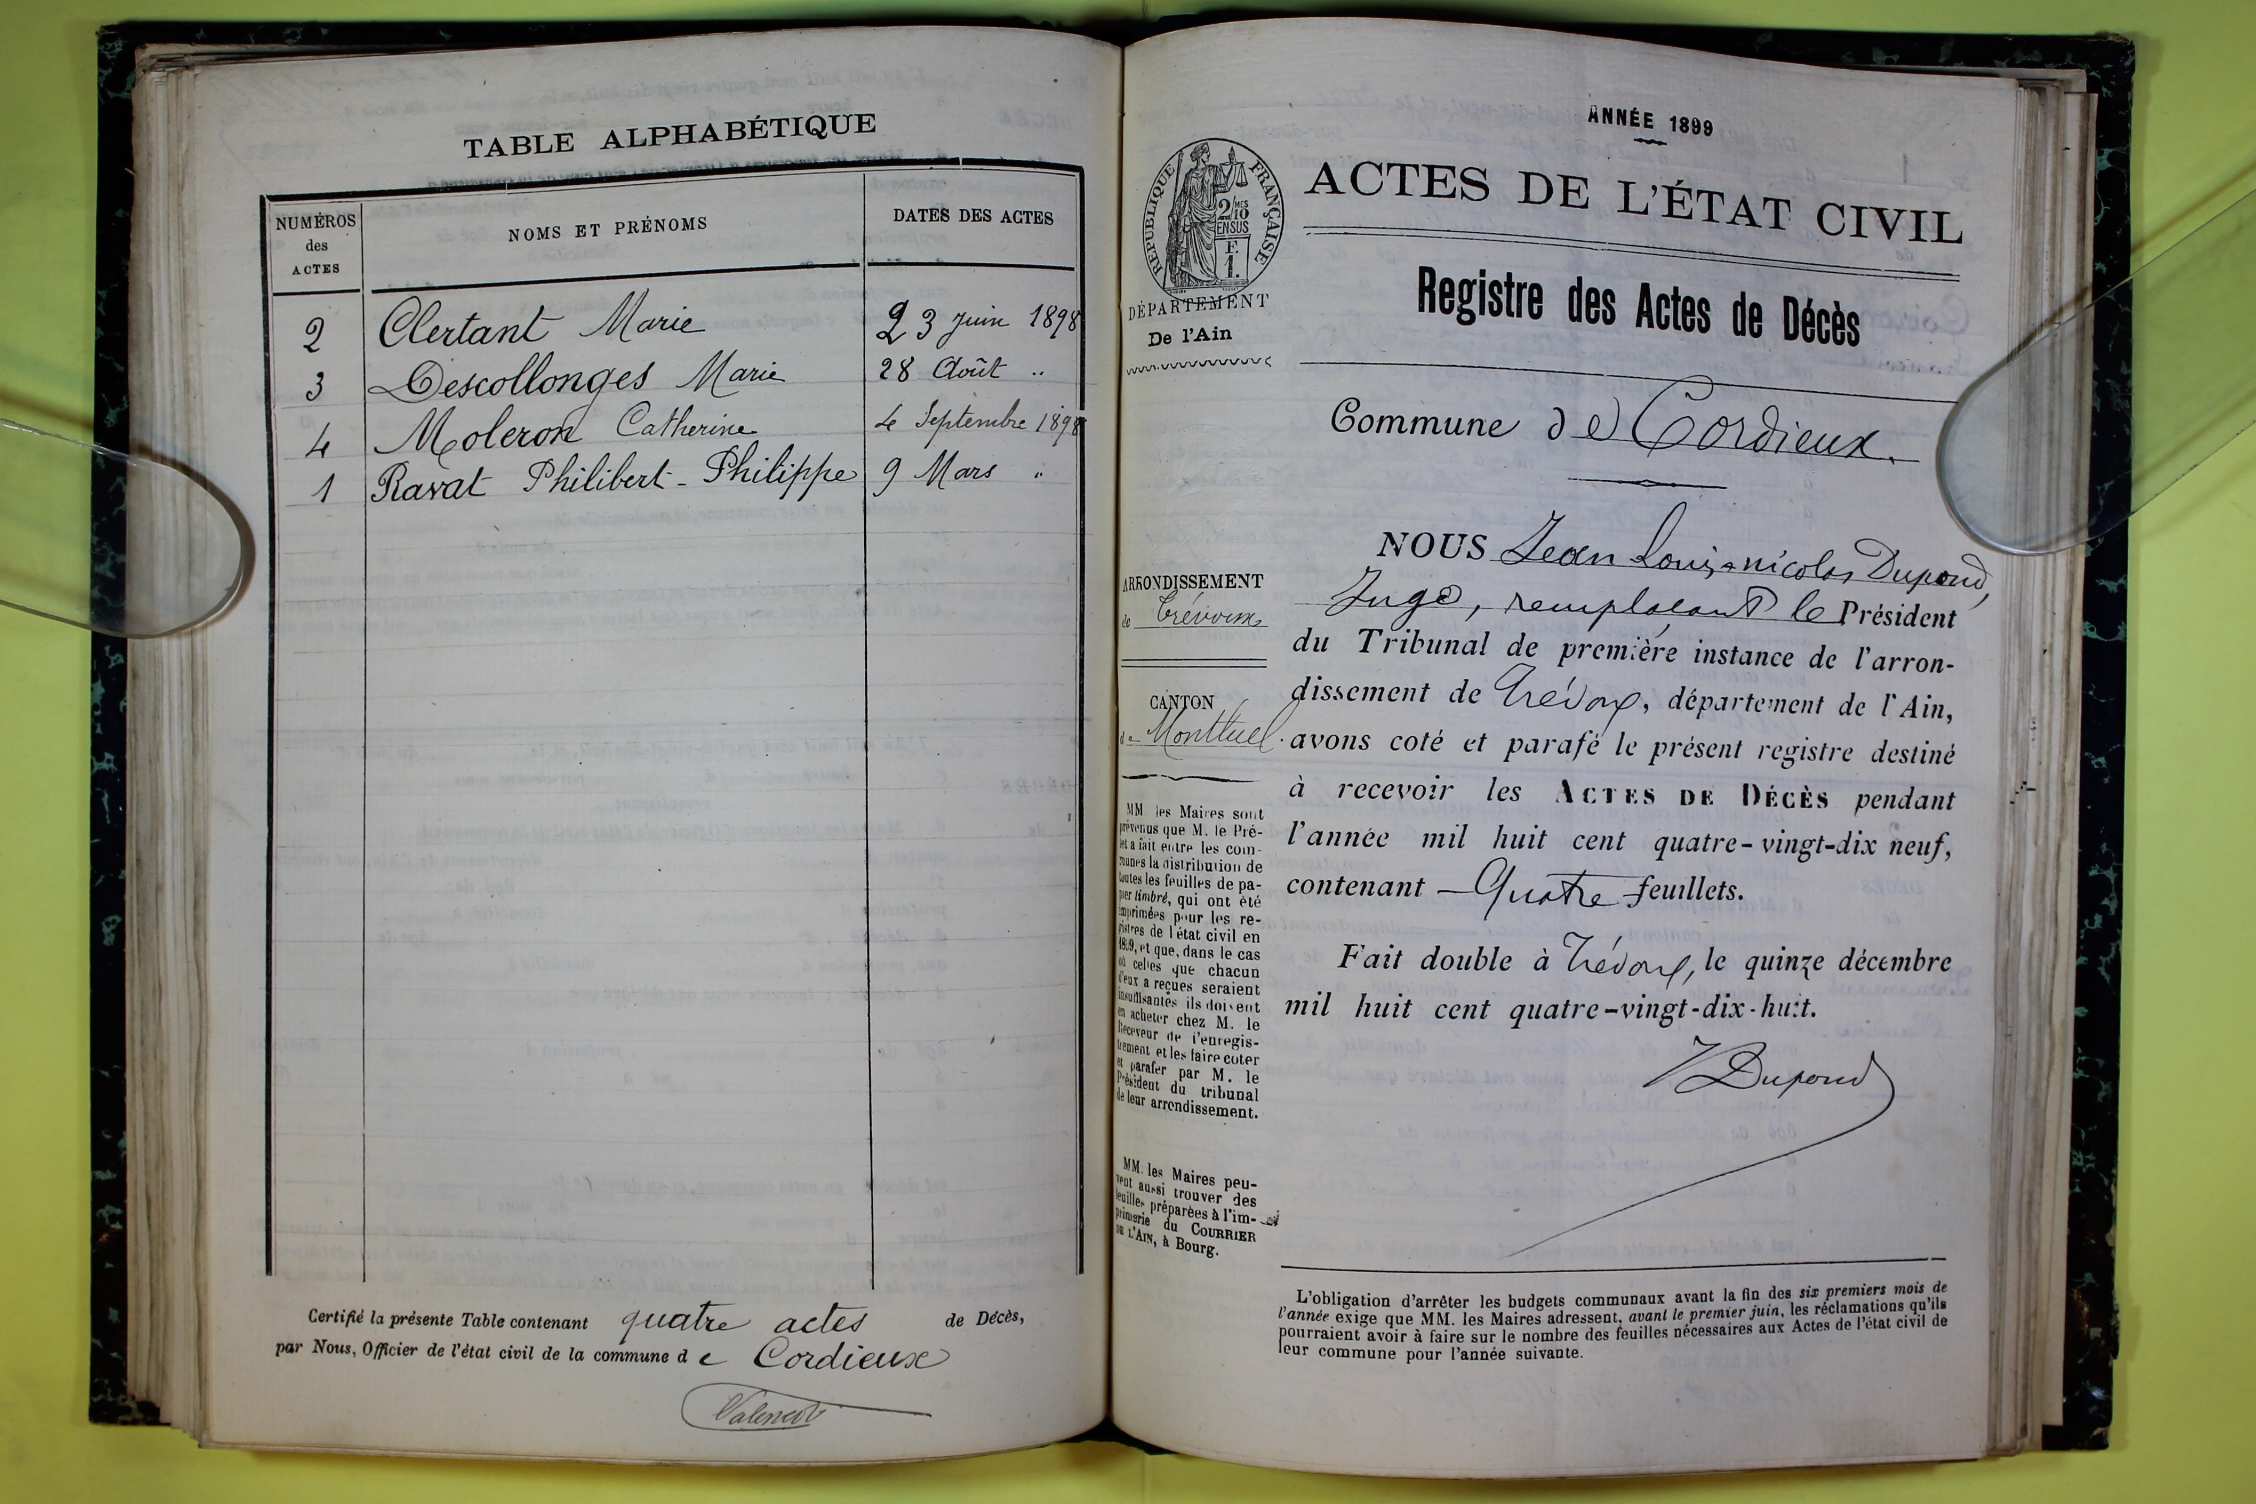 TABLE ALPHABÉTIQUE
NUMÉROS
des
ACTES
NOMS ET PRÉNOMS
DATES DES ACTES
2 Clertant Marie 23 juin 1898
3 Descollonges Marie 28 Août "
4 Moleron Catherine 4 Septembre 1898
1 Ravat Philibert - Philippe 9 Mars "
Certifié la présente Table contenant quatre actes de Décès,
par Nous, Officier de l'état civil de la commune de Cordieux
ANNÉE 1899
ACTES DE L'ÉTAT CIVIL
RÉPUBLIQUE FRANÇAISE
2/10
MES
EN SUS
F.
1.
DÉPARTEMENT
De l'Ain
Registre des Actes de Décès
Commune de Cordieux.
ARRONDISSEMENT
de Trévoux
CANTON
de Montluel.
MM. les Maires sont
prévenus que M. le Pré-
fet a fait entre les com-
munes la distribution de
toutes les feuilles de pa-
pier timbré, qui ont été
imprimées pour les re-
gistres de l'état civil en
1899, et que, dans le cas
où celles que chacun
d'eux a reçues seraient
insuffisantes ils doivent
en acheter chez M. le
Receveur de l'enregis-
trement et les faire coter
et parafer par M. le
Président du tribunal
de leur arrondissement.
MM. les Maires peu-
vent aussi trouver des
feuilles préparées à l'im-
primerie du COURRIER
DE L'AIN, à Bourg.
NOUS Jean Louis-nicolas Dupond,
Juge, remplaçant le Président
du Tribunal de première instance de l'arron-
dissement de Trévoux, département de l'Ain,
avons coté et parafé le présent registre destiné
à recevoir les ACTES DE DÉCÈS pendant
l'année mil huit cent quatre-vingt-dix neuf,
contenant - Quatre feuillets.
Fait double à Trévoux, le quinze décembre
mil huit cent quatre-vingt-dix-huit.
Dupond
L'obligation d'arrêter les budgets communaux avant la fin des six premiers mois de
l'année exige que MM. les Maires adressent, avant le premier juin, les réclamations qu'ils
pourraient avoir à faire sur le nombre des feuilles nécessaires aux Actes de l'état civil de
leur commune pour l'année suivante.